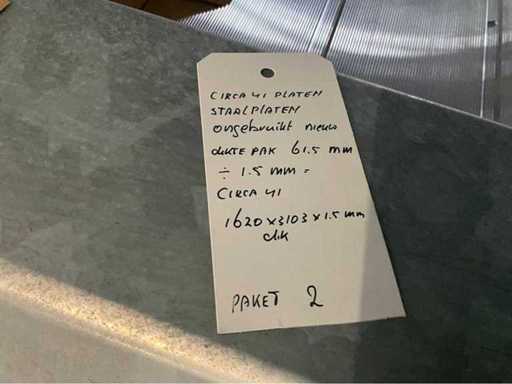 CIRCA 41 PLATEN
STAALPLATEN
ongebruikt nieuw
dikte PAK 61.5 mm
÷ 1.5 mm =
CIRCA 41
1620 x 3103 x 1.5 mm
dik
PAKET 2